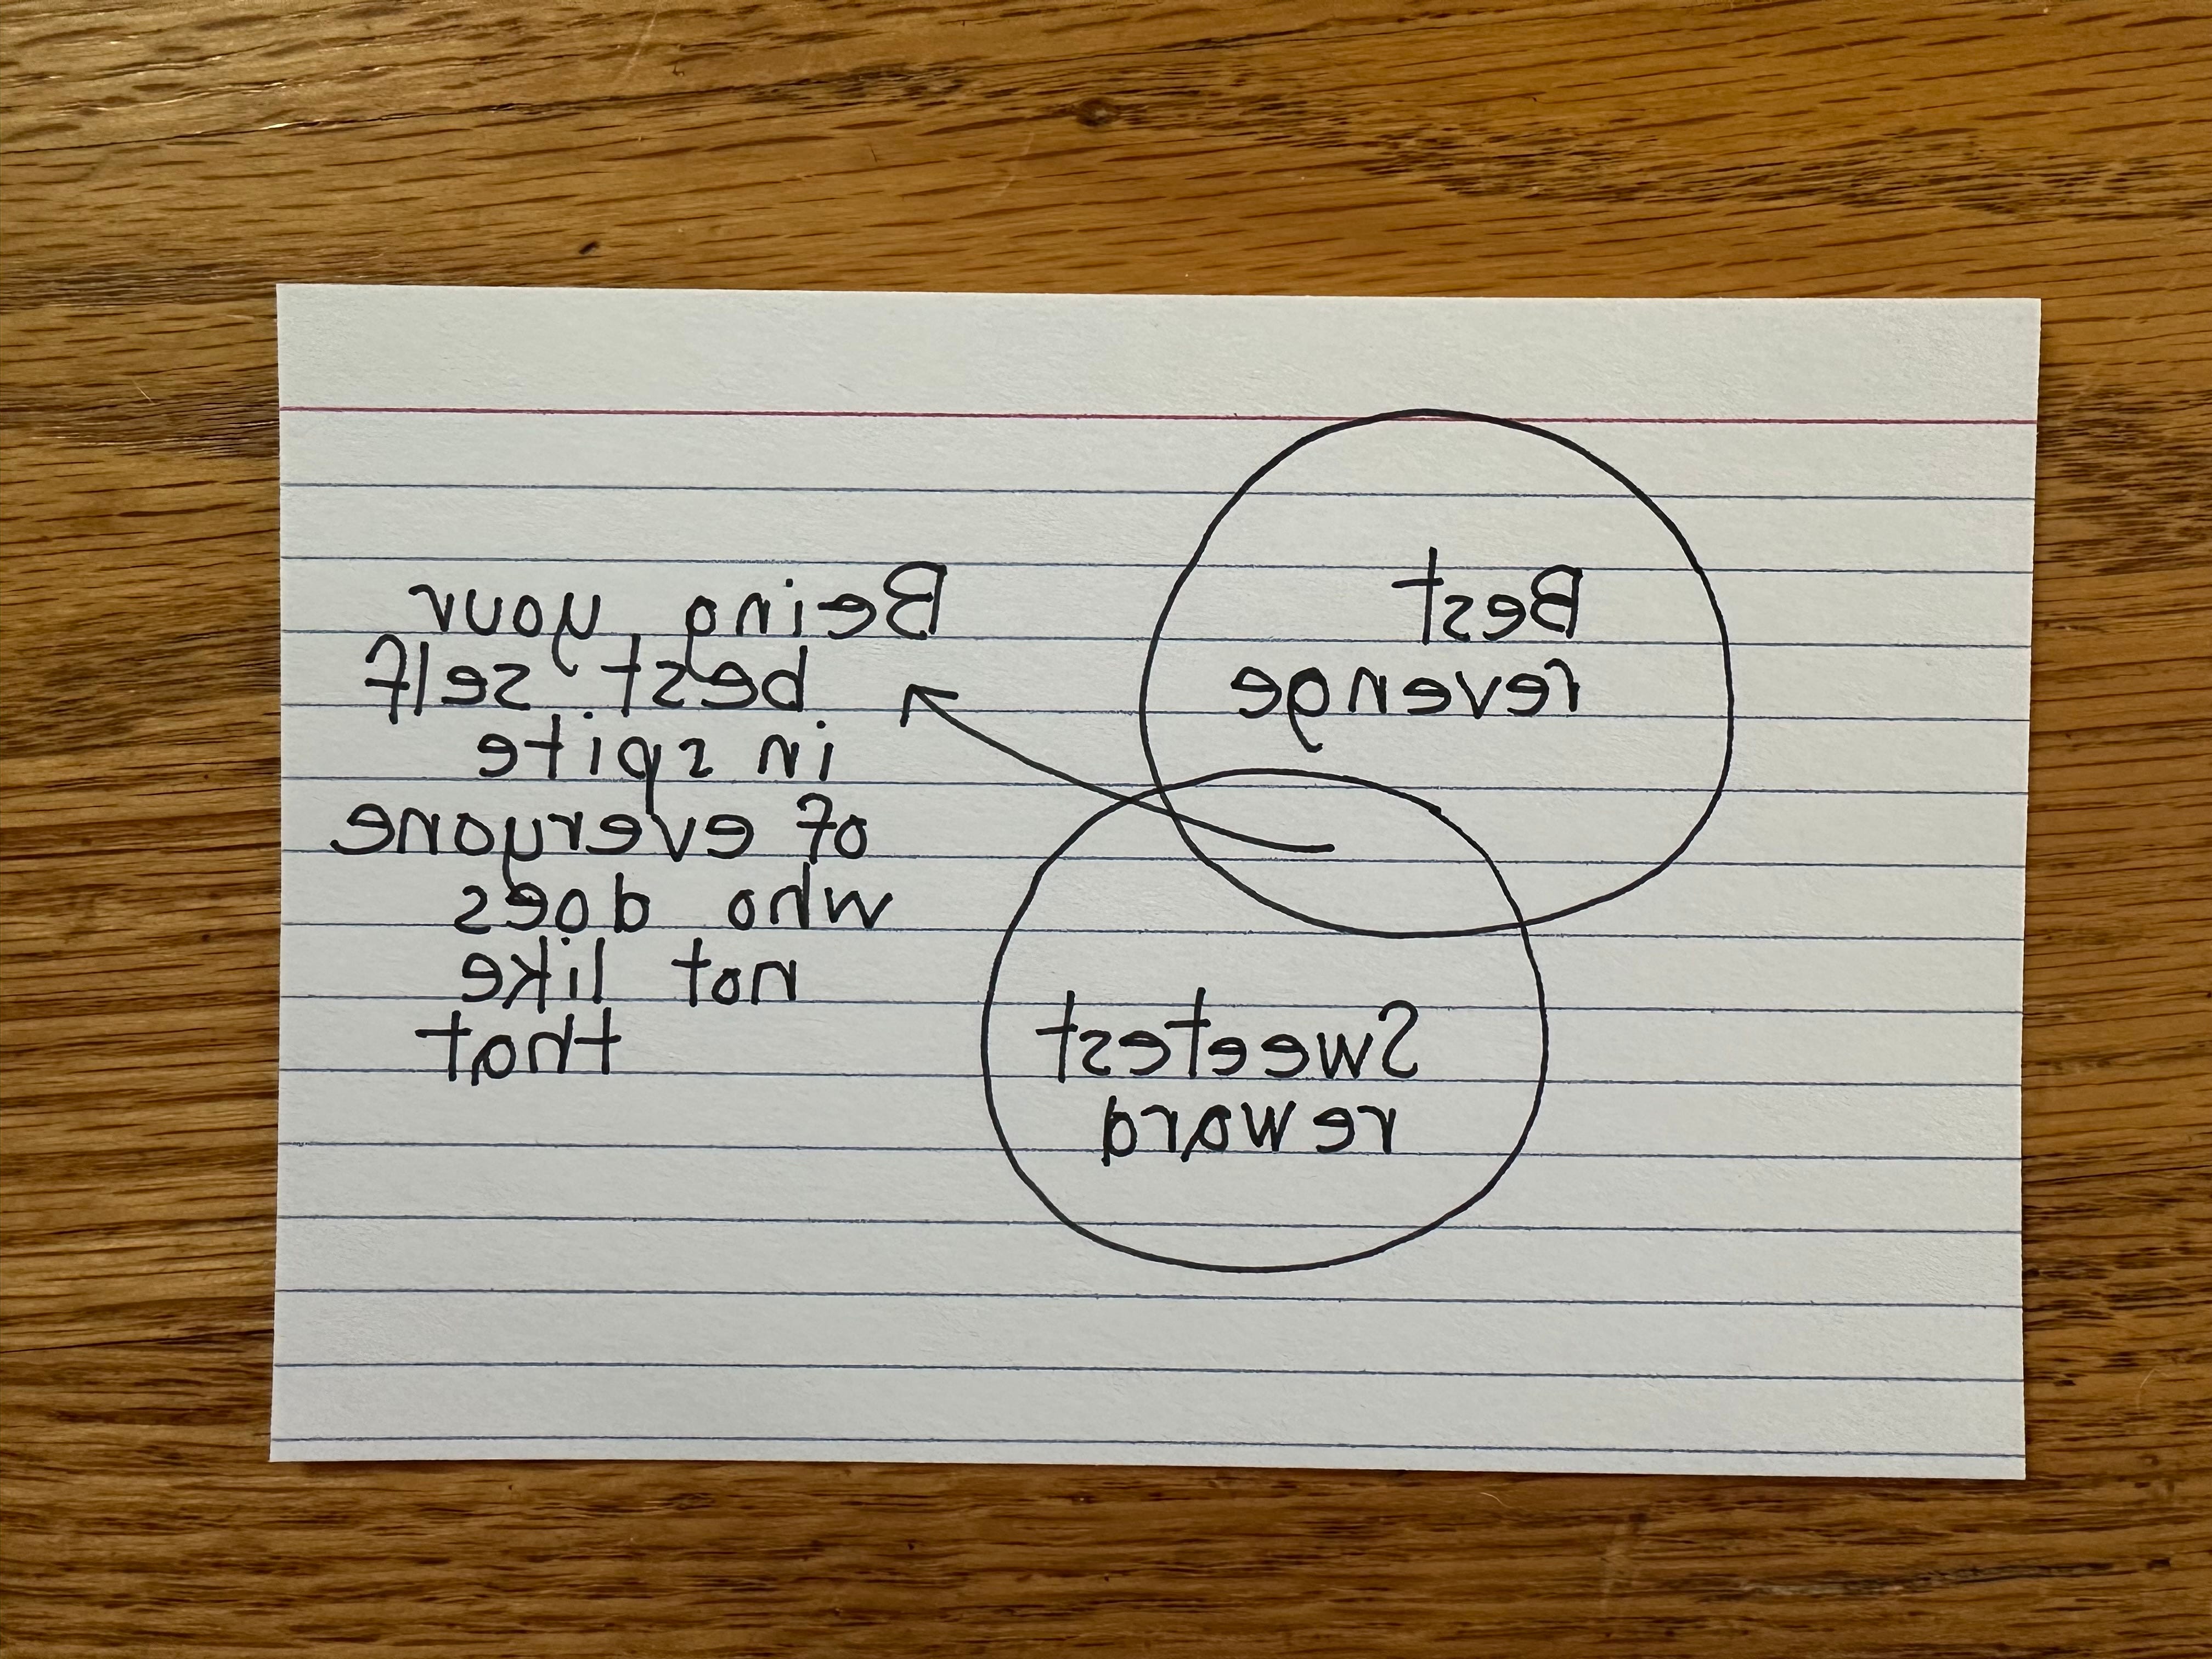 Best
revenge
Sweetest
reward
Being your
best self
in spite
of everyone
who does
not like
that